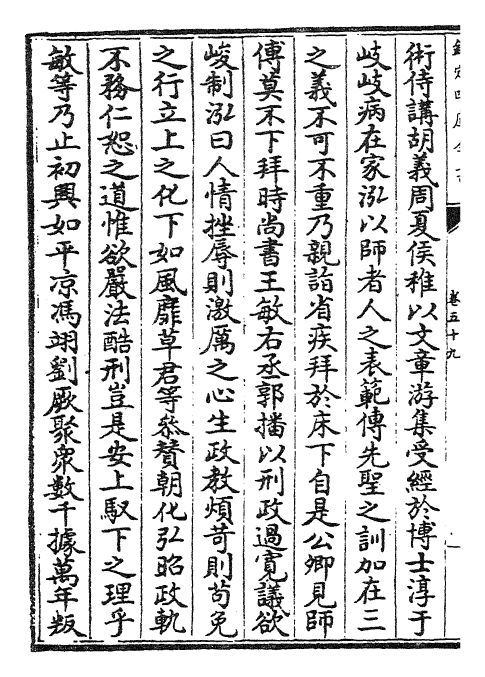 術侍講胡義周夏侯稚以文章游集受經於博士淳于
岐岐病在家泓以師者人之表範傳先聖之訓加在三
之義不可不重乃親詣省疾拜於床下自是公卿見師
傅莫不下拜時尚書王敏右丞郭播以刑政過寛議欲
峻制泓曰人情挫辱則激厲之心生政教煩苛則苟免
之行立上之化下如風靡草君等叅賛朝化弘昭政軌
不務仁恕之道惟欲嚴法酷刑豈是安上馭下之理乎
敏等乃止初興如平凉馮翊劉厥聚衆數千據萬年叛
卷五十九